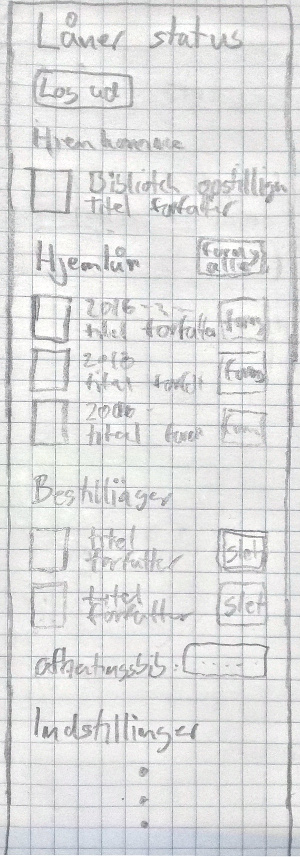 Låner status
Log ud
Hjemkomne
Bibliotek opstilling
titel forfatter
Hjemlån
forny
alle
2016-
titel forfatter
forny
2016
titel forf
forny
titel forf
forn
Bestillinger
titel
forfatter
slet
titel
forfatter
slet
afhentningsbib.
Indstillinger